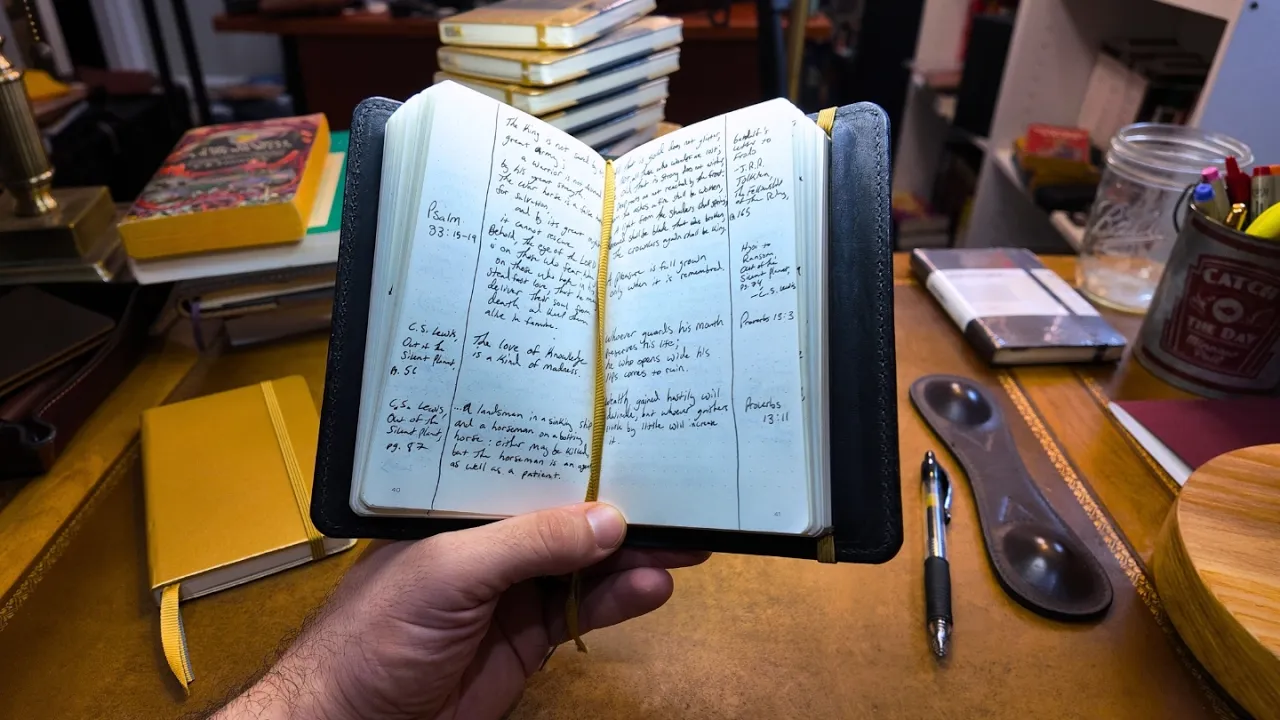 The King is not saved by
great army;
a warrior is not
by his great strength
The war horse is a
for salvation,
and by its great might
it cannot rescue.
Behold, the eye of the LORD
is on those who fear
on those who hope in
steadfast love, that he may
deliver their soul from
death and keep them
alive in famine.
Psalm
33:16-19
C.S. Lewis,
Out of the
Silent Planet,
p. 56
The love of knowledge
is a kind of madness.
C.S. Lewis,
Out of the
Silent Planet,
pg. 87
...a landsman in a sinking ship
and a horseman on a bolting
horse: either may be killed,
but the horseman is an agent
as well as a patient.
40
is gold does not glitter,
all those who wander are lost;
that is strong does not wither,
are not reached by the frost.
the ashes a fire shall be woken,
light from the shadows shall spring;
shall be blade that was broken,
the crownless again shall be king.
Gandalf's
Letter to
Frodo
-J.R.R.
Tolkien
The Fellowship
of the Ring,
165
pleasure is full grown
only when it is remembered.
Hyoi to
Ransom
Out of the
Silent Planet,
pg. 74
- C.S. Lewis
whoever guards his mouth
preserves his life;
he who opens wide his
lips comes to ruin.
Proverbs 13:3
wealth gained hastily will
dwindle, but whoever gathers
little by little will increase
it.
Proverbs
13:11
41
CATCH
THE DAY